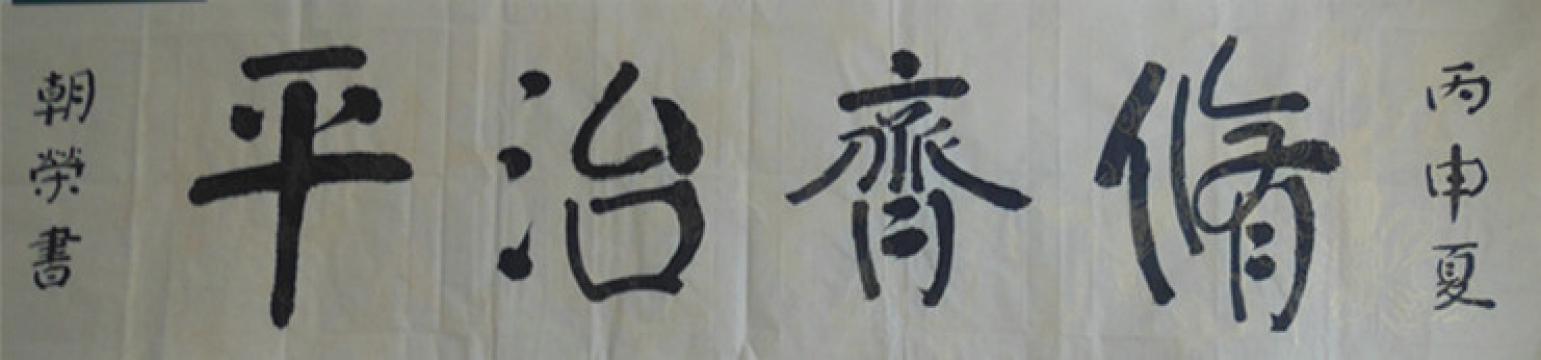 丙申夏
脩齊治平
朝榮書